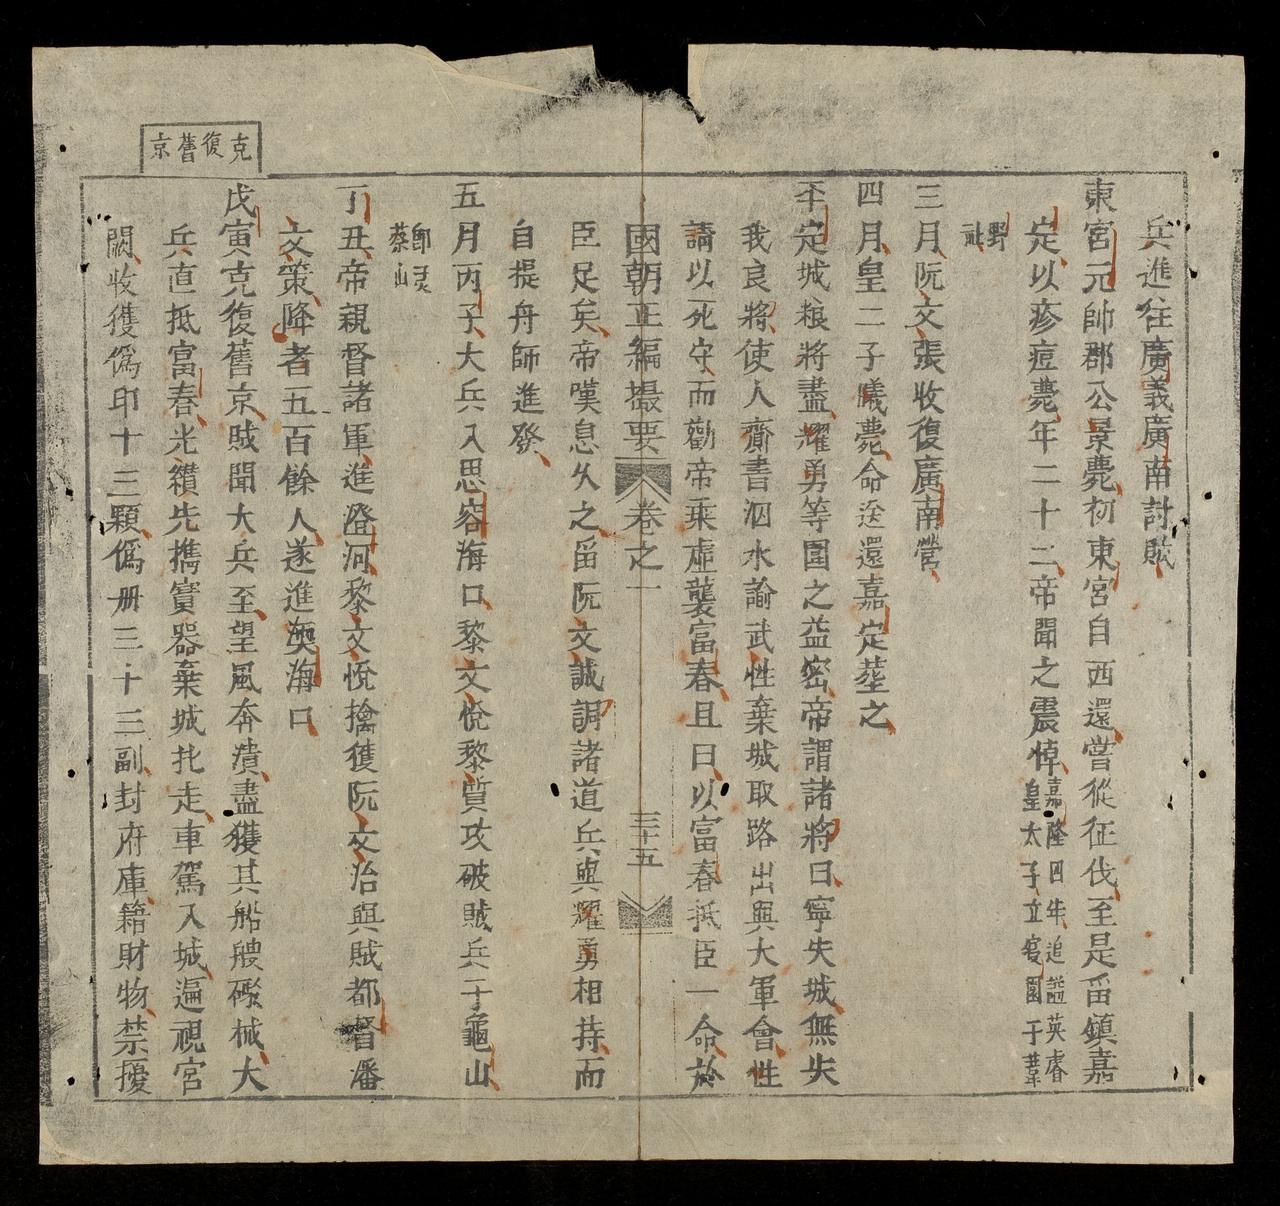 兵進往廣義廣南討賊
東宮元帥郡公景薨初東宮自西還嘗從征伐至是留鎮嘉
定以疹痘薨年二十二帝聞之震悼嘉隆四年追諡英睿
皇太子立寢園于葦
野
祉
三月阮文張收復廣南營
四月皇二子曦薨命送還嘉定塟之
平定城粮將盡耀勇等圍之益密帝謂諸將曰寧失城無失
我良將使人齎書泅水諭武性棄城取路出與大軍會性
請以死守而勸帝乘虛襲富春且曰以富春抵臣一命於
國朝正編撮要 卷之一 三十五
臣足矣帝嘆息久之留阮文誠調諸道兵與耀勇相持而
自提舟師進發
五月丙子大兵入思容海口黎文悅黎質攻破賊兵于龜山
卽灵
蔡山
丁丑帝親督諸軍進澄河黎文悅擒獲阮文治與賊都督潘
文策降者五百餘人遂進渜海口
克復舊京
戊寅克復舊京賊聞大兵至望風奔潰盡獲其船艘礮械大
兵直抵富春光纉先携寳器棄城北走車駕入城遍視宮
闕收獲僞印十三顆僞册三十三副封府庫籍財物禁擾